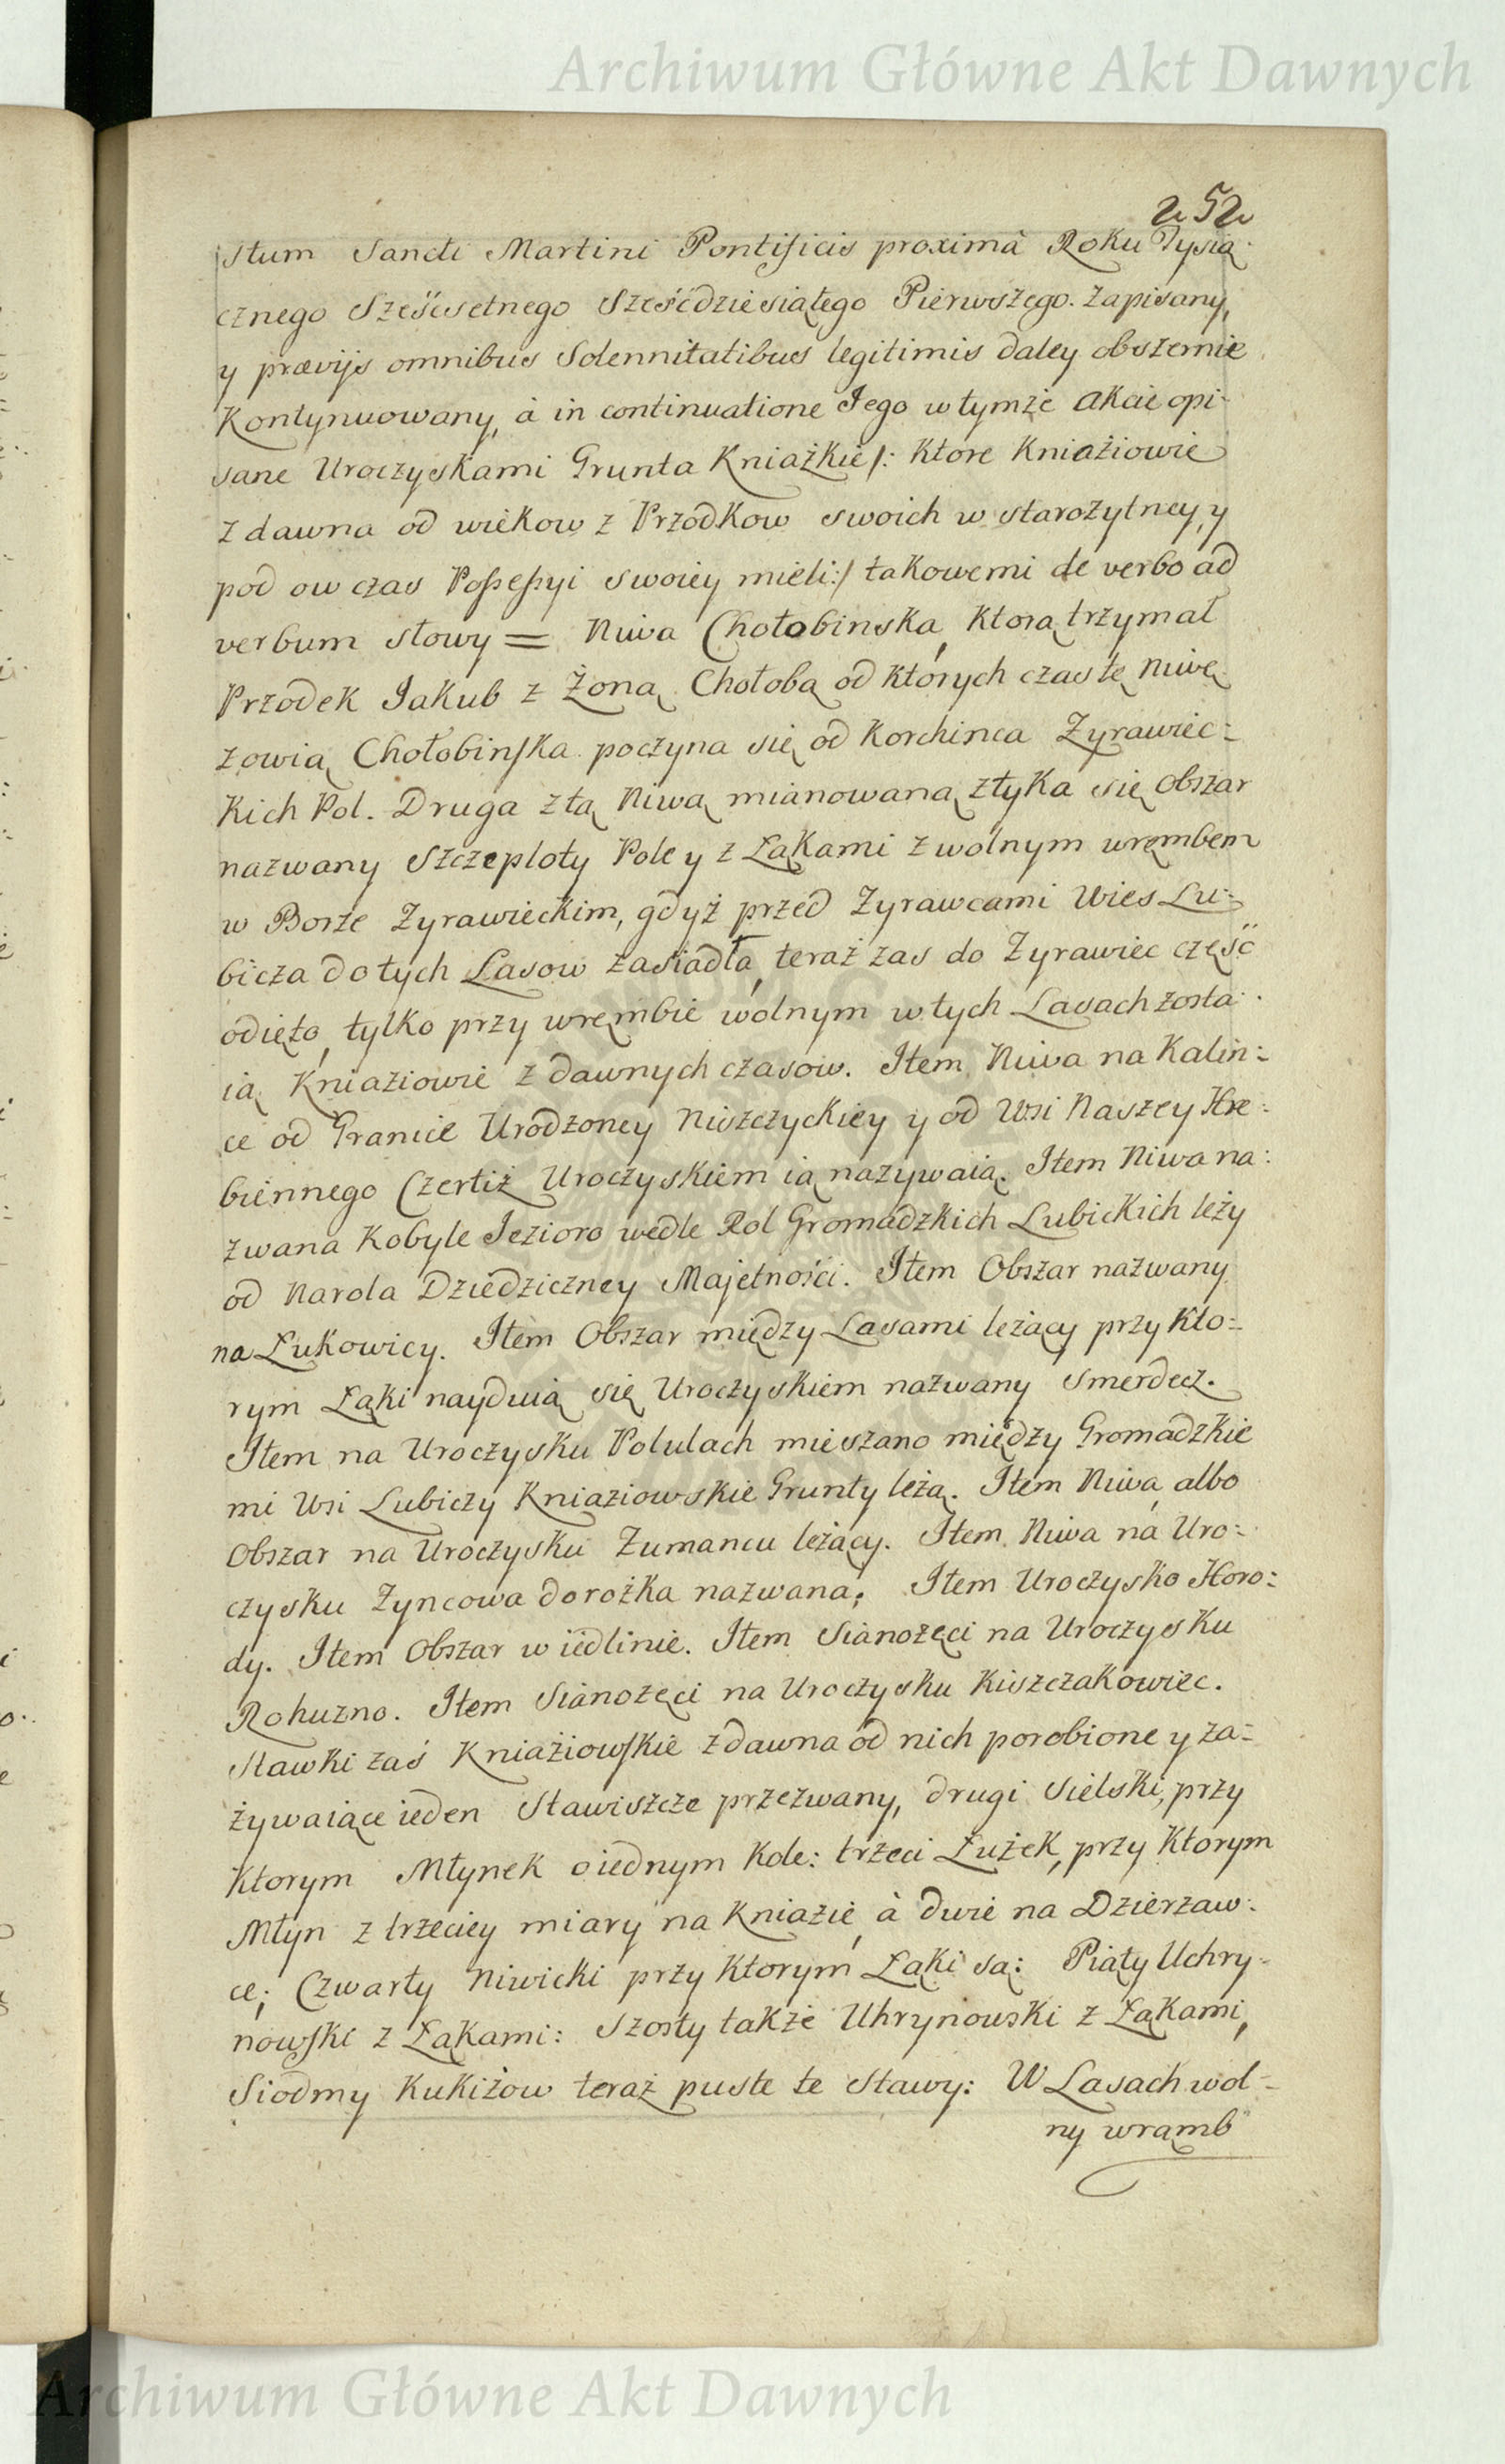 Archiwum Główne Akt Dawnych
252
stum Sancti Martini Pontificis proximâ Roku Tysią-
cznego Sześćsetnego Sześćdziesiątego Pierwszego. zapisany,
y prævijs omnibus Solennitatibus legitimis daley obszernie
Kontynuowany, à in continuatione Jego w tymże Akcie opi-
sane Uroczyskami Grunta Kniaźkie /: Ktore Kniaźiowie
z dawna od wiekow z Przodkow swoich w starożytney, y
pod ow czas Possessyi swoiey mieli :/ takowemi de verbo ad
verbum słowy = Niwa Chołobinska, Ktorą trzymał
Przodek Jakub z Żoną Chołobą od ktorych czas tę niwę
zowią Chołobinska poczyna się od Korchinca Zyrawiec:
Kich Pol. Druga z tą Niwą mianowaną ztyka się Obszar
nazwany Szczeploty Pole y z Łąkami z wolnym wrembem
w Borze Zyrawieckim, gdyż przed Zyrawcami Wies Lu-
bicza do tych Lasow zasiadła, teraz zas do Zyrawiec część
odięto, tylko przy wrembie wolnym w tych Lasach zosta-
ią Kniaziowie z dawnych czasow. Item Niwa na Kalin:
ce od Granic Urodzoney Niszczyckiey y od Wsi Naszey Hre:
biennego Czertiż Uroczyskiem ią nazywaią. Item Niwa na:
zwana Kobyle Jezioro wedle Rol Gromadzkich Lubickich leży
od Narola Dziedziczney Majetności. Item Obszar nazwany
na Łukowicy. Item Obszar między Lasami leżący przy Kto:
rym Łąki nayduią się Uroczyskiem nazwany Smerdecz.
Item na Uroczysku Polulach mieszano między Gromadzkie
mi Wsi Lubiczy Kniaziowskie Grunty leżą. Item Niwa, albo
Obszar na Uroczysku Zumancu leżący. Item Niwa na Uro:
czysku Zyncowa dorożka nazwana; Item Uroczysko Horo:
dy. Item Obszar w iedlinie. Item Sianożęci na Uroczysku
Rohuzno. Item Sianożęci na Uroczysku Kiszczakowiec.
Stawki zaś Kniaziowskie zdawna od nich porobione y za:
żywaiące ieden Stawiszcze przezwany, drugi Sielski, przy
Ktorym Młynek o iednym Kole: trzeci Łużek, przy Ktorym
Młyn z trzeciey miary na Kniazie, à dwie na Dzierzaw:
ce; Czwarty Niwicki przy Ktorym Łąki są: Piąty Uchry-
nowski z Łąkami: Szosty także Uhrynowski z Łąkami,
Siodmy Kukiżow teraz puste te Stawy: W Lasach wol-
ny wrąmb
Archiwum Główne Akt Dawnych